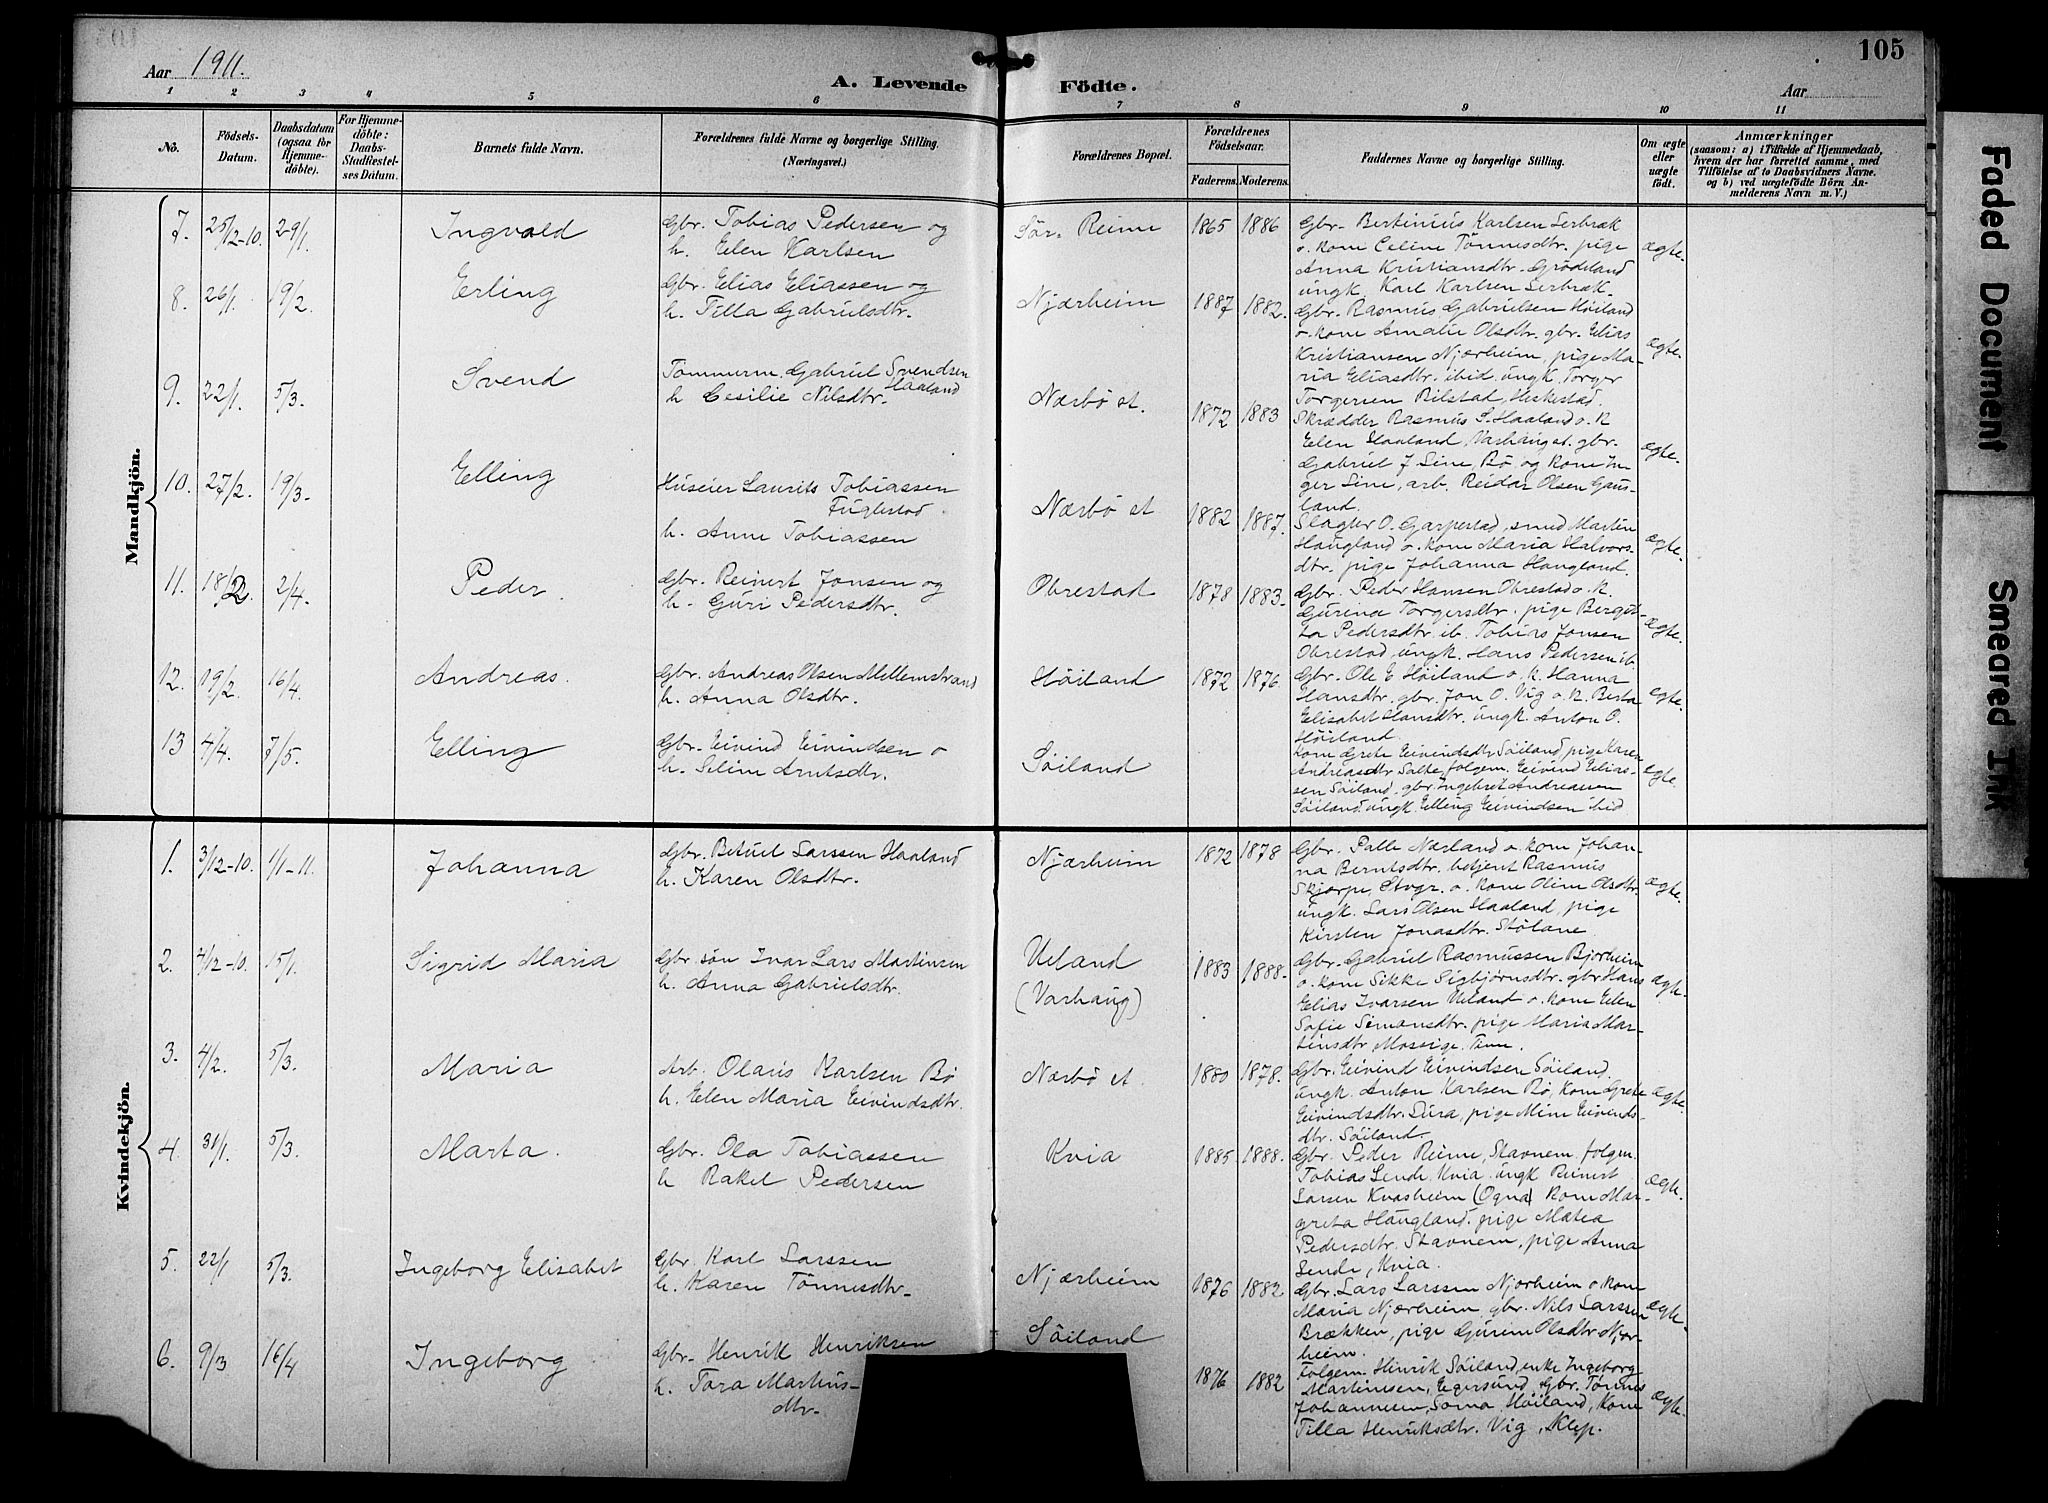 105
Aar 1911.
A. Levende Födte.
Aar
1 2 3 4 5 6 7 8 9 10 11
No.
Födsels-Datum.
Daabsdatum (ogsaa for Hjemmedöbte).
For Hjemmedöbte: Daabs-Stadfestelses Datum.
Barnets fulde Navn.
Forældrenes fulde Navne og borgerlige Stilling. (Næringsvei.)
Forældrenes Bopæl.
Forældrenes Födselsaar.
Faderens. Moderens.
Faddernes Navne og borgerlige Stilling.
Om ægte eller uægte födt.
Anmærkninger
(saasom: a) i Tilfælde af Hjemmedaab,
hvem der har forrettet samme, med
Tilföielse af to Daabsvidners Navne.
og b) ved uægtefödte Börn An-
melderens Navn m. V.)
Mandkjön.
7. 25/12-10. 29/1. Ingvald
Gbr. Tobias Pedersen og
h. Elen Karlsen
Sör. Reime 1865 1886
Gbr. Bertinius Karlsen Serbræk
o. kone Celine Tönnesdtr. pige
Anna Kristiansdtr. Grödeland
ungk. Karl Karlsen Serbræk.
ægte.
8. 26/1. 19/2. Erling
Gbr. Elias Eliassen og
h. Tilla Gabrielsdtr.
Njærheim 1887 1882.
Gbr. Rasmus Gabrielsen Höiland
o. kone Amalie Olsdtr. gbr. Elias
Kristiansen Njærheim, pige Ma-
ria Eliasdtr. ibid. ungk. Torger
Torgersen Bilstad, Heskestad.
ægte.
9. 22/1. 5/3. Svend
Tömmerm. Gabriel Svendsen Haaland
h. Cecilie Nilsdtr.
Nærbö st. 1872 1883
Skrædder Rasmus S. Haaland o. K
Elen Haaland, Varhaug st. gbr.
Gabriel J Line, Bö og kone In-
ger Line, arb. Reidar Olsen Gaus-
land.
ægte.
10. 27/2. 19/3. Elling
Huseier Laurits Tobiassen
Fuglestad.
h. Anne Tobiassen
Nærbö st 1882 1887.
Slagter O. Garpestad, smed Martin
Haugland o. kone Maria Halvors-
dtr. pige Johanna Haugland.
ægte.
11. 18/2. 2/4. Peder.
Gbr. Reinert Jonsen og
h. Guri Pedersdtr.
Obrestad 1878 1883.
Gbr. Peder Hansen Obrestad o. K.
Gurina Torgersdtr. pige Bergit-
ta Pedersdtr. ib. Tobias Jonsen
Obrestad ungk. Hans Pedersen ib.
ægte.
12. 19/2. 16/4. Andreas.
Gbr. Andreas Olsen Mellemstrand
h. Anna Olsdtr.
Höiland 1872 1876.
Gbr. Ole E Höiland o. K. Hanna
Hansdtr. gbr. Jon O. Vig o. K. Berta
Elisabet Hansdtr. ungk. Anton O.
Höiland.
ægte.
13 4/4. 7/5. Elling
Gbr. Eivind Eivindsen o
h. Seline Arntsdtr.
Söiland
Kone Grete Eivindsdtr Söiland, pige Karen
Andreasdtr Salte, folgem. Eivind Elias-
sen Söiland, gbr. Ingebret Andreassen
Söiland, ungk. Elling Eivindsen ibid
ægte.
Kvindekjön.
1. 3/12-10. 1/1-11. Johanna
Gbr. Betuel Larssen Haaland
h. Karen Olsdtr.
Njærheim 1872 1878
Gbr. Palle Nærland o. kone Johan-
na Berntsdtr. betjent Rasmus
Skjærpe, Stvgr. o. kone Oline Olsdtr.
ungk. Lars Olsen Haaland, pige
Kirsten Jonasdtr. Stölane
ægte.
2. 4/12-10. 15/1. Sigrid Maria
Gbr. sön Ivar Lars Martinsen
h. Anna Gabrielsdtr.
Ueland
(Varhaug)
1883 1888.
Gbr. Gabriel Rasmussen Bjorheim
o. kone Sikke Sigbjörnsdtr. gbr Hans
Elias Ivarsen Ueland o. kone Elen
Sofie Simonsdtr. pige Maria Mar-
tinsdtr Mossige. Time.
ægte.
3. 4/2. 5/3. Maria
Arb. Olaus Karlsen Bö
h. Elen Maria Eivindsdtr.
Nærbö st. 1880 1878.
Gbr. Eivind Eivindsen Söiland.
ungk. Anton Karlsen Bö, kone Grete
Eivindsdtr. Lura, pige Mine Eivinds-
dtr. Söiland.
ægte.
4. 31/1. 5/3. Marta.
Gbr. Ola Tobiassen
h Rakel Pedersen
Kvia 1885. 1888.
Gbr. Peder Reime, Stavnem, folgem.
Tobias Lende, Kvia. ungk Reinert
Larsen Kvasheim (Ogna) kone Mar-
greta Haugland. pige Matea
Pedersdtr. Stavnem, pige Anna
Lende, Kvia.
ægte.
5. 22/1 5/3. Ingeborg Elisabet
Gbr. Karl Larssen
h. Karen Tönnesdtr.
Njærheim 1876 1882
Gbr. Lars Larssen Njærheim o. kone
Maria Njærheim, gbr. Nils Larssen
Brækken, pige Gurine Olsdtr Njær-
heim.
ægte.
6. 9/3 16/4 Ingeborg
Gbr. Henrik Henriksen
h. Tora Martins-
dtr.
Söiland 1876 1882
Folgem. Henrik Söiland, enke Ingeborg
Martinsen, Egersund, Gbr. Tönnes
Johannesen, Soma, Höiland, kone
Tilla Henriksdtr. Vig, Klep.
ægte.
Faded Document
Smeared Ink